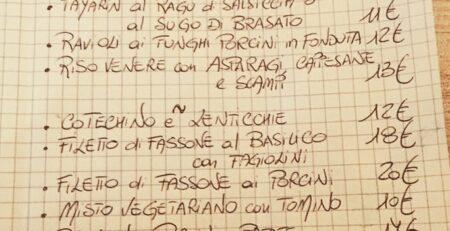 • TAYARIN al RAGÙ di SALSICCIA o
al SUGO DI BRASATO 11€
• RAVIOLI ai FUNGHI PORCINI in FONDUTA 12€
• RISO VENERE con ASPARAGI, CAPESANE
e SCAMPI 13€
• COTECHINO e LENTICCHIE 12€
• FILETTO di FASSONE al BASILICO 18€
con FAGIOLINI
• FILETTO di FASSONE ai PORCINI 20€
• MISTO VEGETARIANO con TOMINO 10€